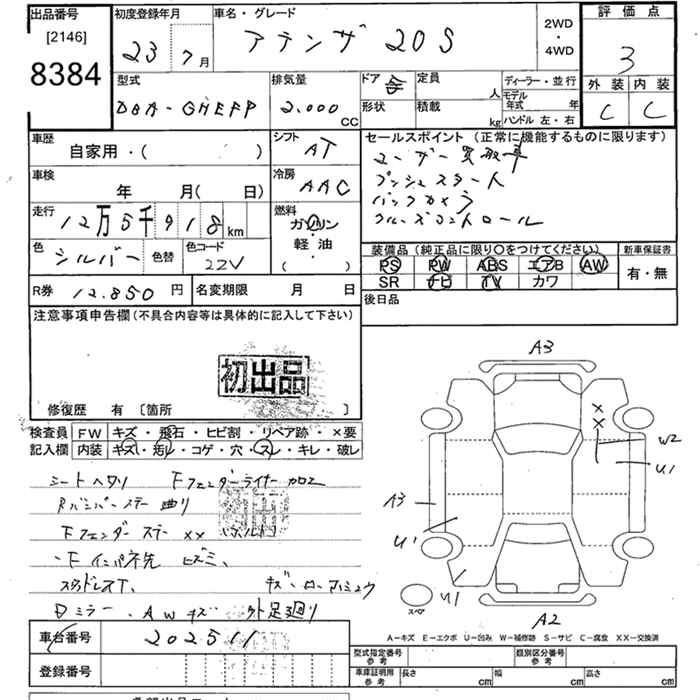 出品番号 初度登録年月 車名・グレード 2WD・4WD 評価点
[2146]
8384 23 7月 アテンザ 20S 3
型式 排気量 ドア 定員 人 ディーラー・並行 外装 内装
DBA-GHEFP 2.000 CC 形状 積載 kg モデル年式 年 C C
ハンドル 左・右
車歴 シフト セールスポイント (正常に機能するものに限ります)
自家用・( ) AT ユーザー買取車
車検 冷房 プッシュスタート
年 月( 日) AAC バックカメラ
走行 燃料 クルーズコントロール
12万5千918km ガソリン
軽油
( )
色 シルバー 色替 色コード 22V
装備品 (純正品に限り○をつけてください) 新車保証書
PS PW ABS エアB AW 有・無
SR ナビ TV カワ
R券 12.850円 名変期限 月 日 後日品
注意事項申告欄 (不具合内容等は具体的に記入して下さい)
初出品
修復歴 有 [箇所 ]
検査員 FW キズ・飛石・ヒビ割・リペア跡・×要
記入欄 内装 キズ・汚レ・コゲ・穴・スレ・キレ・破レ
シートヘタリ Fフェンダーライナー加工
Rバンパーステー曲り
Fフェンダーステー ××(ボルト)
初出品
F インパネ先 ヒズミ、
スタッドレスT、
Dミラー、AWキズ 外足廻り
A3
××
W2
U1
A3
U1
U1
スペア
A2
A－キズ E－エクボ U－凹み W－補修跡 S－サビ C－腐食 XX－交換済
車台番号 202511
登録番号
型式指定番号 参考 類別区分番号 参考
車庫証明用 参考 長さ cm 幅 cm 高さ cm